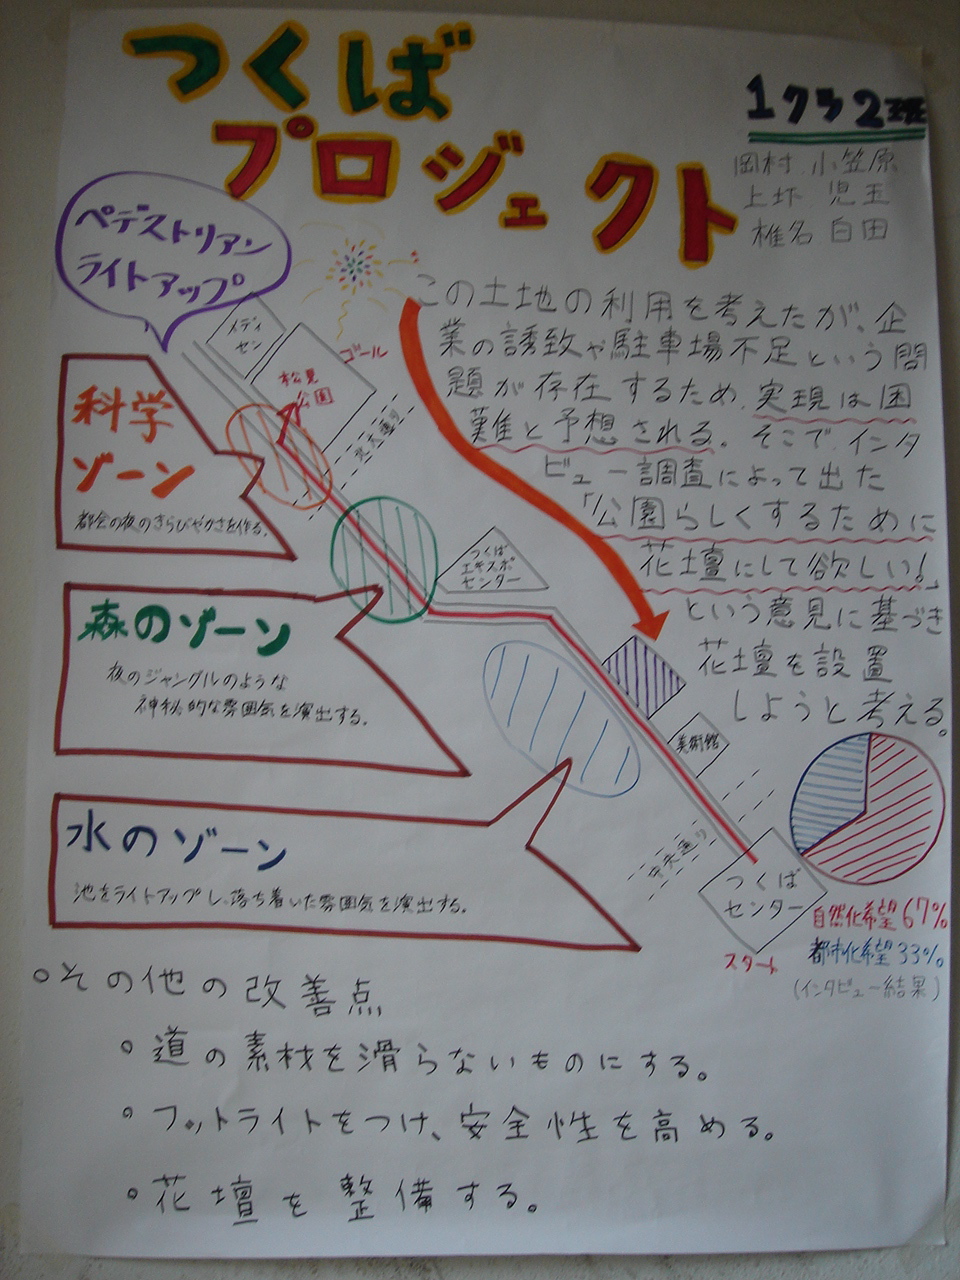 つくば
プロジェクト
1クラ2班
岡村 小笠原
上坏 児玉
椎名 白田
ペデストリアン
ライトアップ
メディ
セン
ゴール
松見
公園
北大通り
この土地の利用を考えたが、企
業の誘致や駐車場不足という問
題が存在するため、実現は困
難と予想される。そこでインタ
ビュー調査によって出た
「公園らしくするために
花壇にして欲しい!」
という意見に基づき
花壇を設置
しようと考える。
科学
ゾーン
都会の夜のきらびやかさを作る。
つくば
エキスポ
センター
森のゾーン
夜のジャングルのような
神秘的な雰囲気を演出する。
美術館
水のゾーン
池をライトアップし、落ち着いた雰囲気を演出する。
中央通り
つくば
センター
スタート
自然化希望67%
都市化希望33%
(インタビュー結果)
その他の改善点
道の素材を滑らないものにする。
フットライトをつけ、安全性を高める。
花壇を整備する。